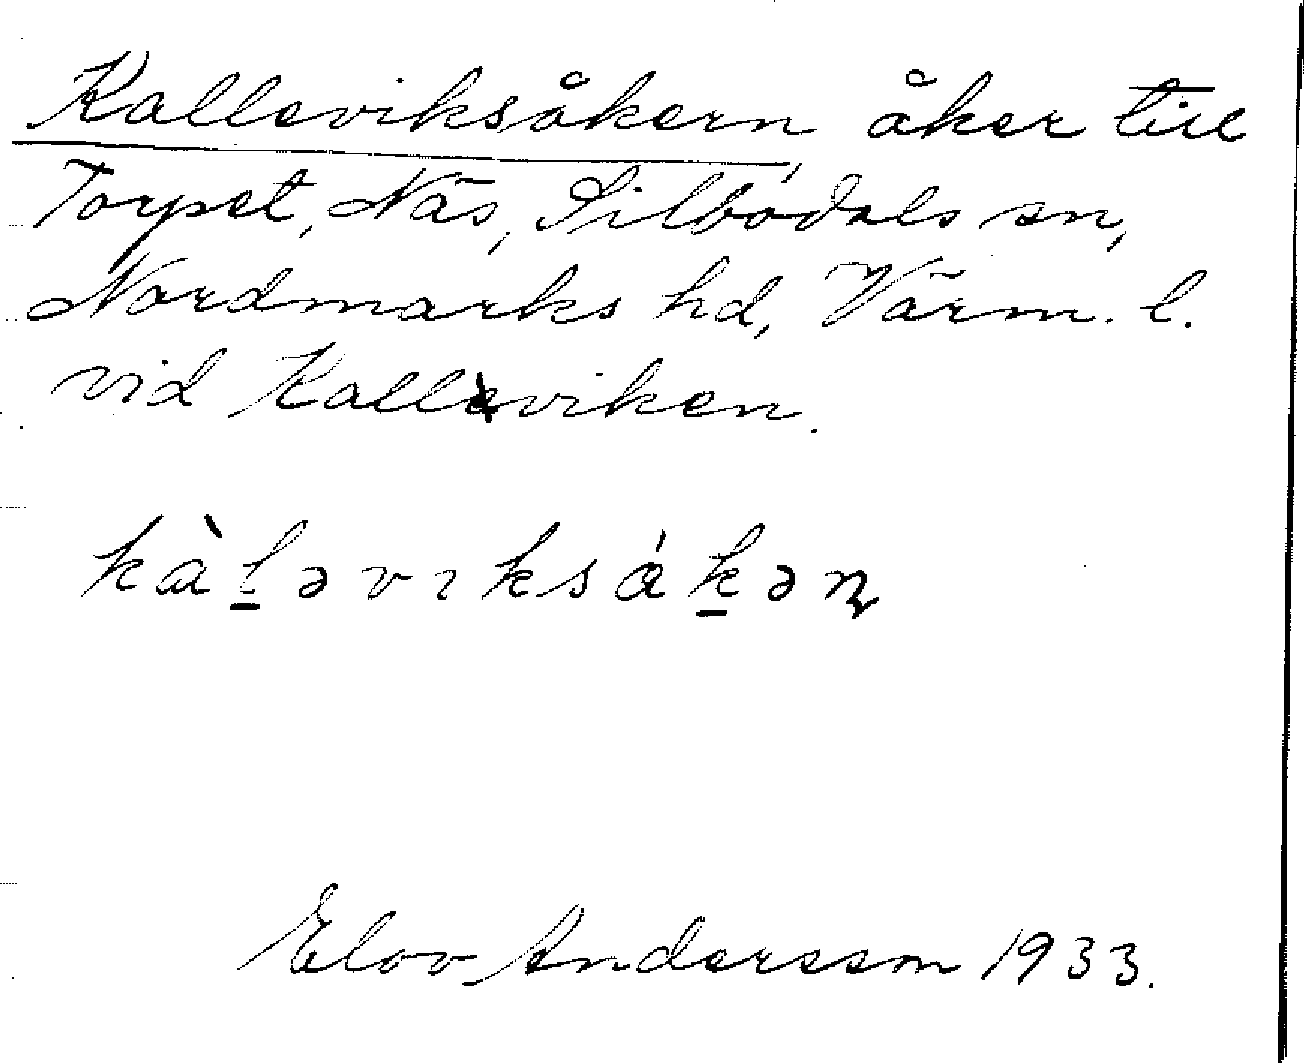 Kalleviksåkern, åker till
Torpet, Näs, Silbodals sn,
Nordmarks hd, Värm. l.
vid Kalleviken.
kàl̲əvıksák̲əɳ
Elov Andersson 1933.